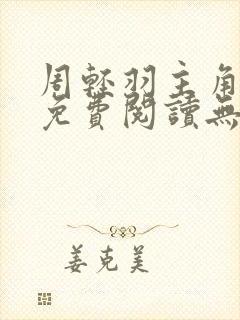 周輕羽主角
免費閱讀無
姜克美